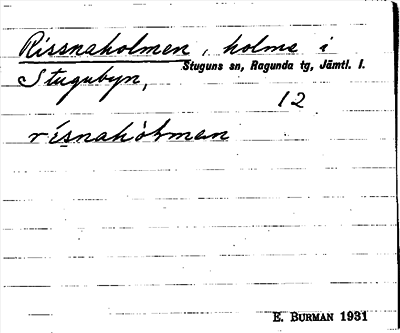 Rissnaholmen, holme i
Stuguns sn, Ragunda tg, Jämtl. l.
Stugubyn,
12
risnahòlmen
E. BURMAN 1931